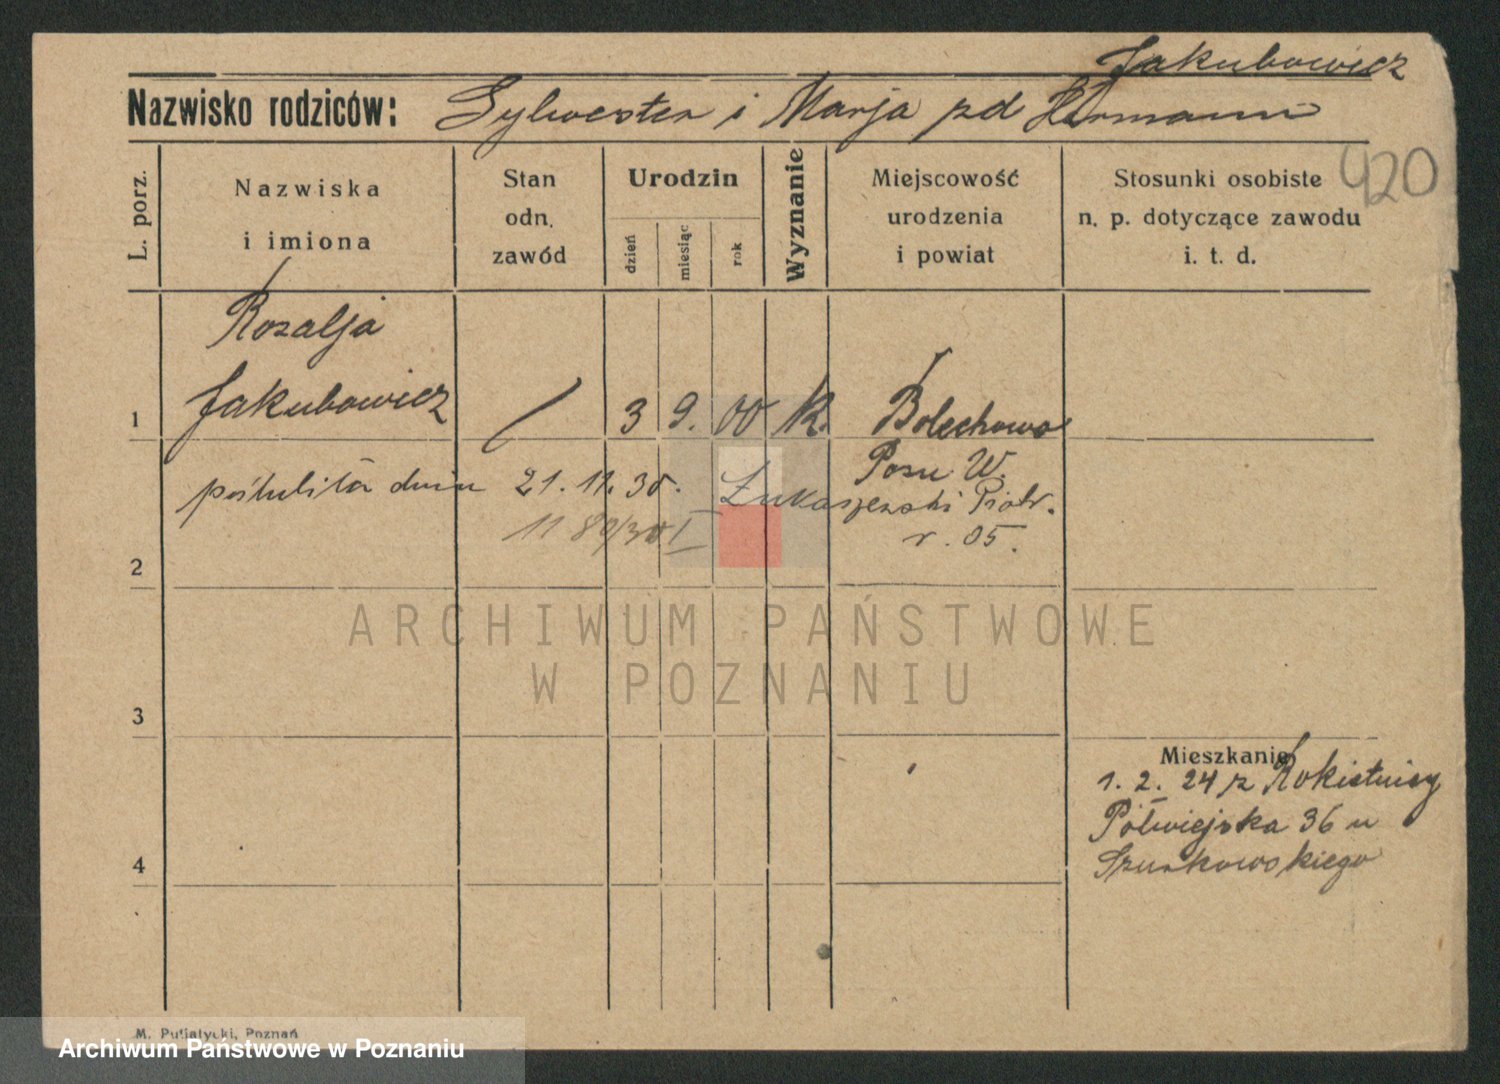 Jakubowicz
Nazwisko rodziców: Sylwester i Marja zd Hermann
420
L. porz.
Nazwiska
i imiona
Stan
odn.
zawód
Urodzin
dzień
miesiąc
rok
Wyznanie
Miejscowość
urodzenia
i powiat
Stosunki osobiste
n. p. dotyczące zawodu
i. t. d.
Rozalja
1 Jakubowicz / 3 9. 00 K. Bolechowo
Pozn W.
poślubiła dnia 21.11.30. Łukaszewski Piotr.
1189/30 I r. 05.
2
ARCHIWUM PAŃSTWOWE
W POZNANIU
3
Mieszkanie
1. 2. 24 z Rokietnicy
Półwiejska 36 u
4
M. Putiatycki, Poznań
Archiwum Państwowe w Poznaniu